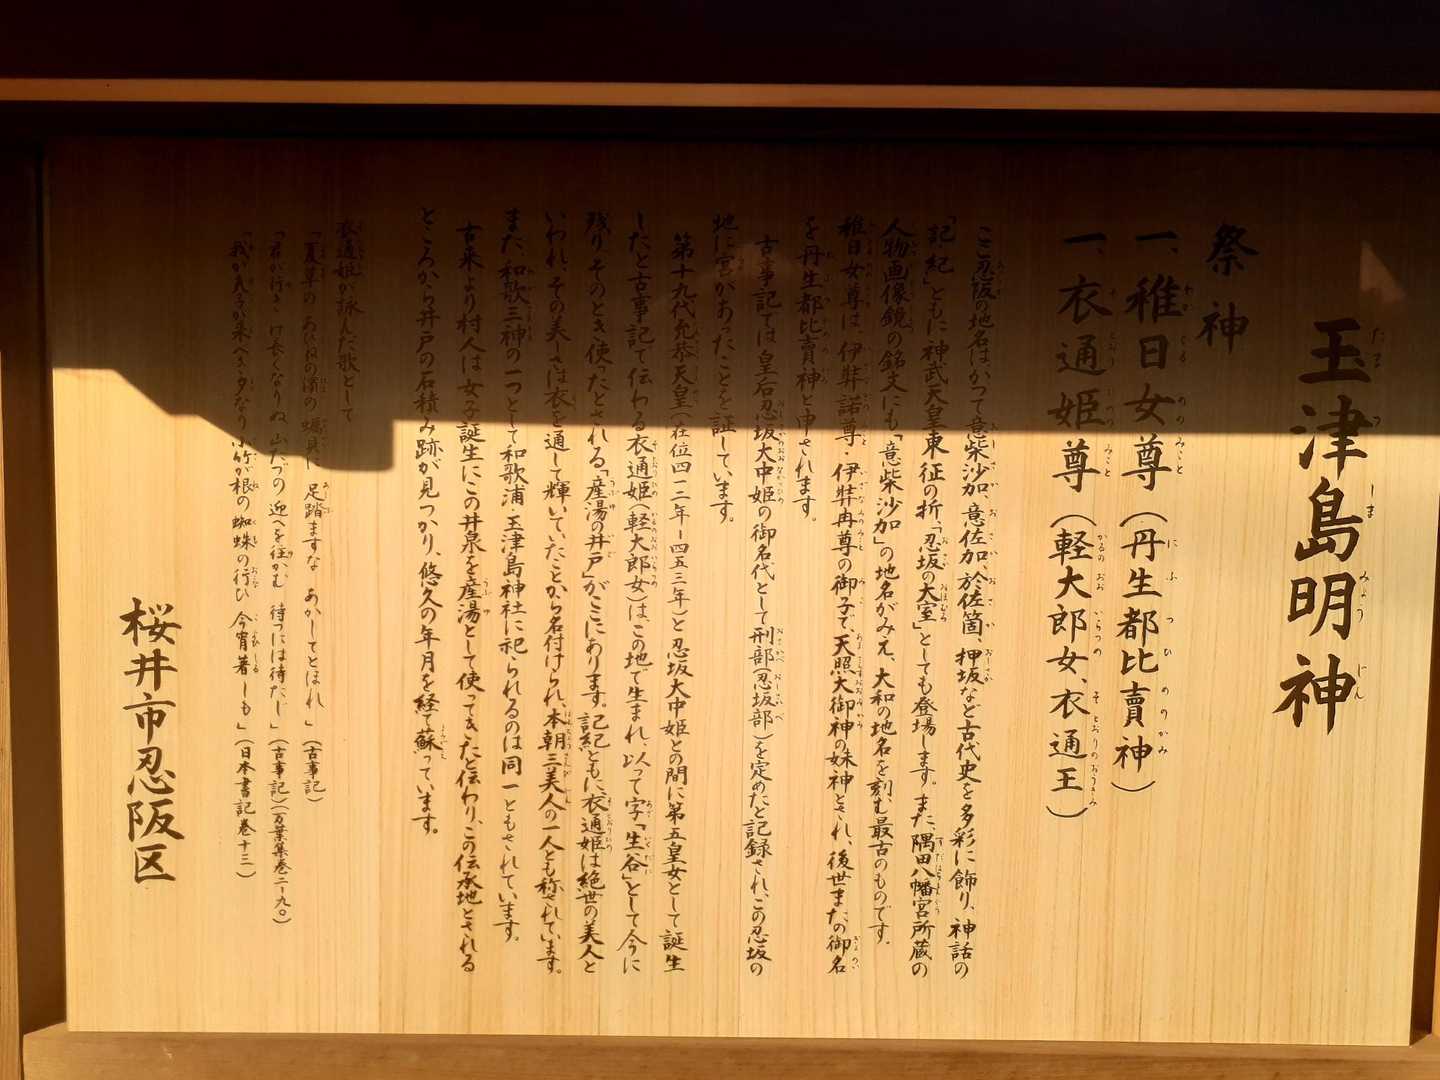 玉津島明神
祭神
一、稚日女尊（丹生都比賣神）
一、衣通姫尊（軽大郎女、衣通王）
ここ忍阪の地名はかつて意柴沙加、意佐加、於佐箇、押坂など古代史を多彩に飾り、神話の
「記紀」ともに神武天皇東征の折、「忍坂の大室」としても登場します。また、隅田八幡宮所蔵の
人物画像鏡の銘文にも「意柴沙加」の地名がみえ、大和の地名を刻む最古のものです。
稚日女尊は、伊弉諾尊・伊弉冉尊の御子で、天照大御神の妹神とされ、後世またの御名
を丹生都比賣神と申されます。
古事記では皇后忍坂大中姫の御名代として刑部（忍坂部）を定めたと記録され、この忍坂の
地に宮があったことを証しています。
第十九代允恭天皇（在位四一二年ー四五三年）と忍坂大中姫との間に第五皇女として誕生
したと古事記で伝わる衣通姫（軽大郎女）は、この地で生まれ、以って字「生谷」として今に
残り、そのとき使ったとされる「産湯の井戸」がここにあります。記紀ともに、衣通姫は絶世の美人と
いわれ、その美しさは衣を通して輝いていたことから名付けられ、本朝三美人の一人とも称されています。
また、和歌三神の一つとして和歌浦・玉津島神社に祀られるのは同一ともされています。
古来より村人は女子誕生にこの井泉を産湯として使ってきたと伝わり、この伝承地とされる
ところから井戸の石積み跡が見つかり、悠久の年月を経て蘇っています。
衣通姫が詠んだ歌として
「夏草の あひねの濱の 蠣貝に 足踏ますな あかしてとほれ」（古事記）
「君が行き け長くなりぬ 山たづの 迎へを往かむ 待つには待たじ」（古事記）（万葉集巻二ー九〇）
「我が夫子が来べき夕なり 小竹が根の 蜘蛛の行ひ 今宵著しも」（日本書記巻十三）
桜井市忍阪区